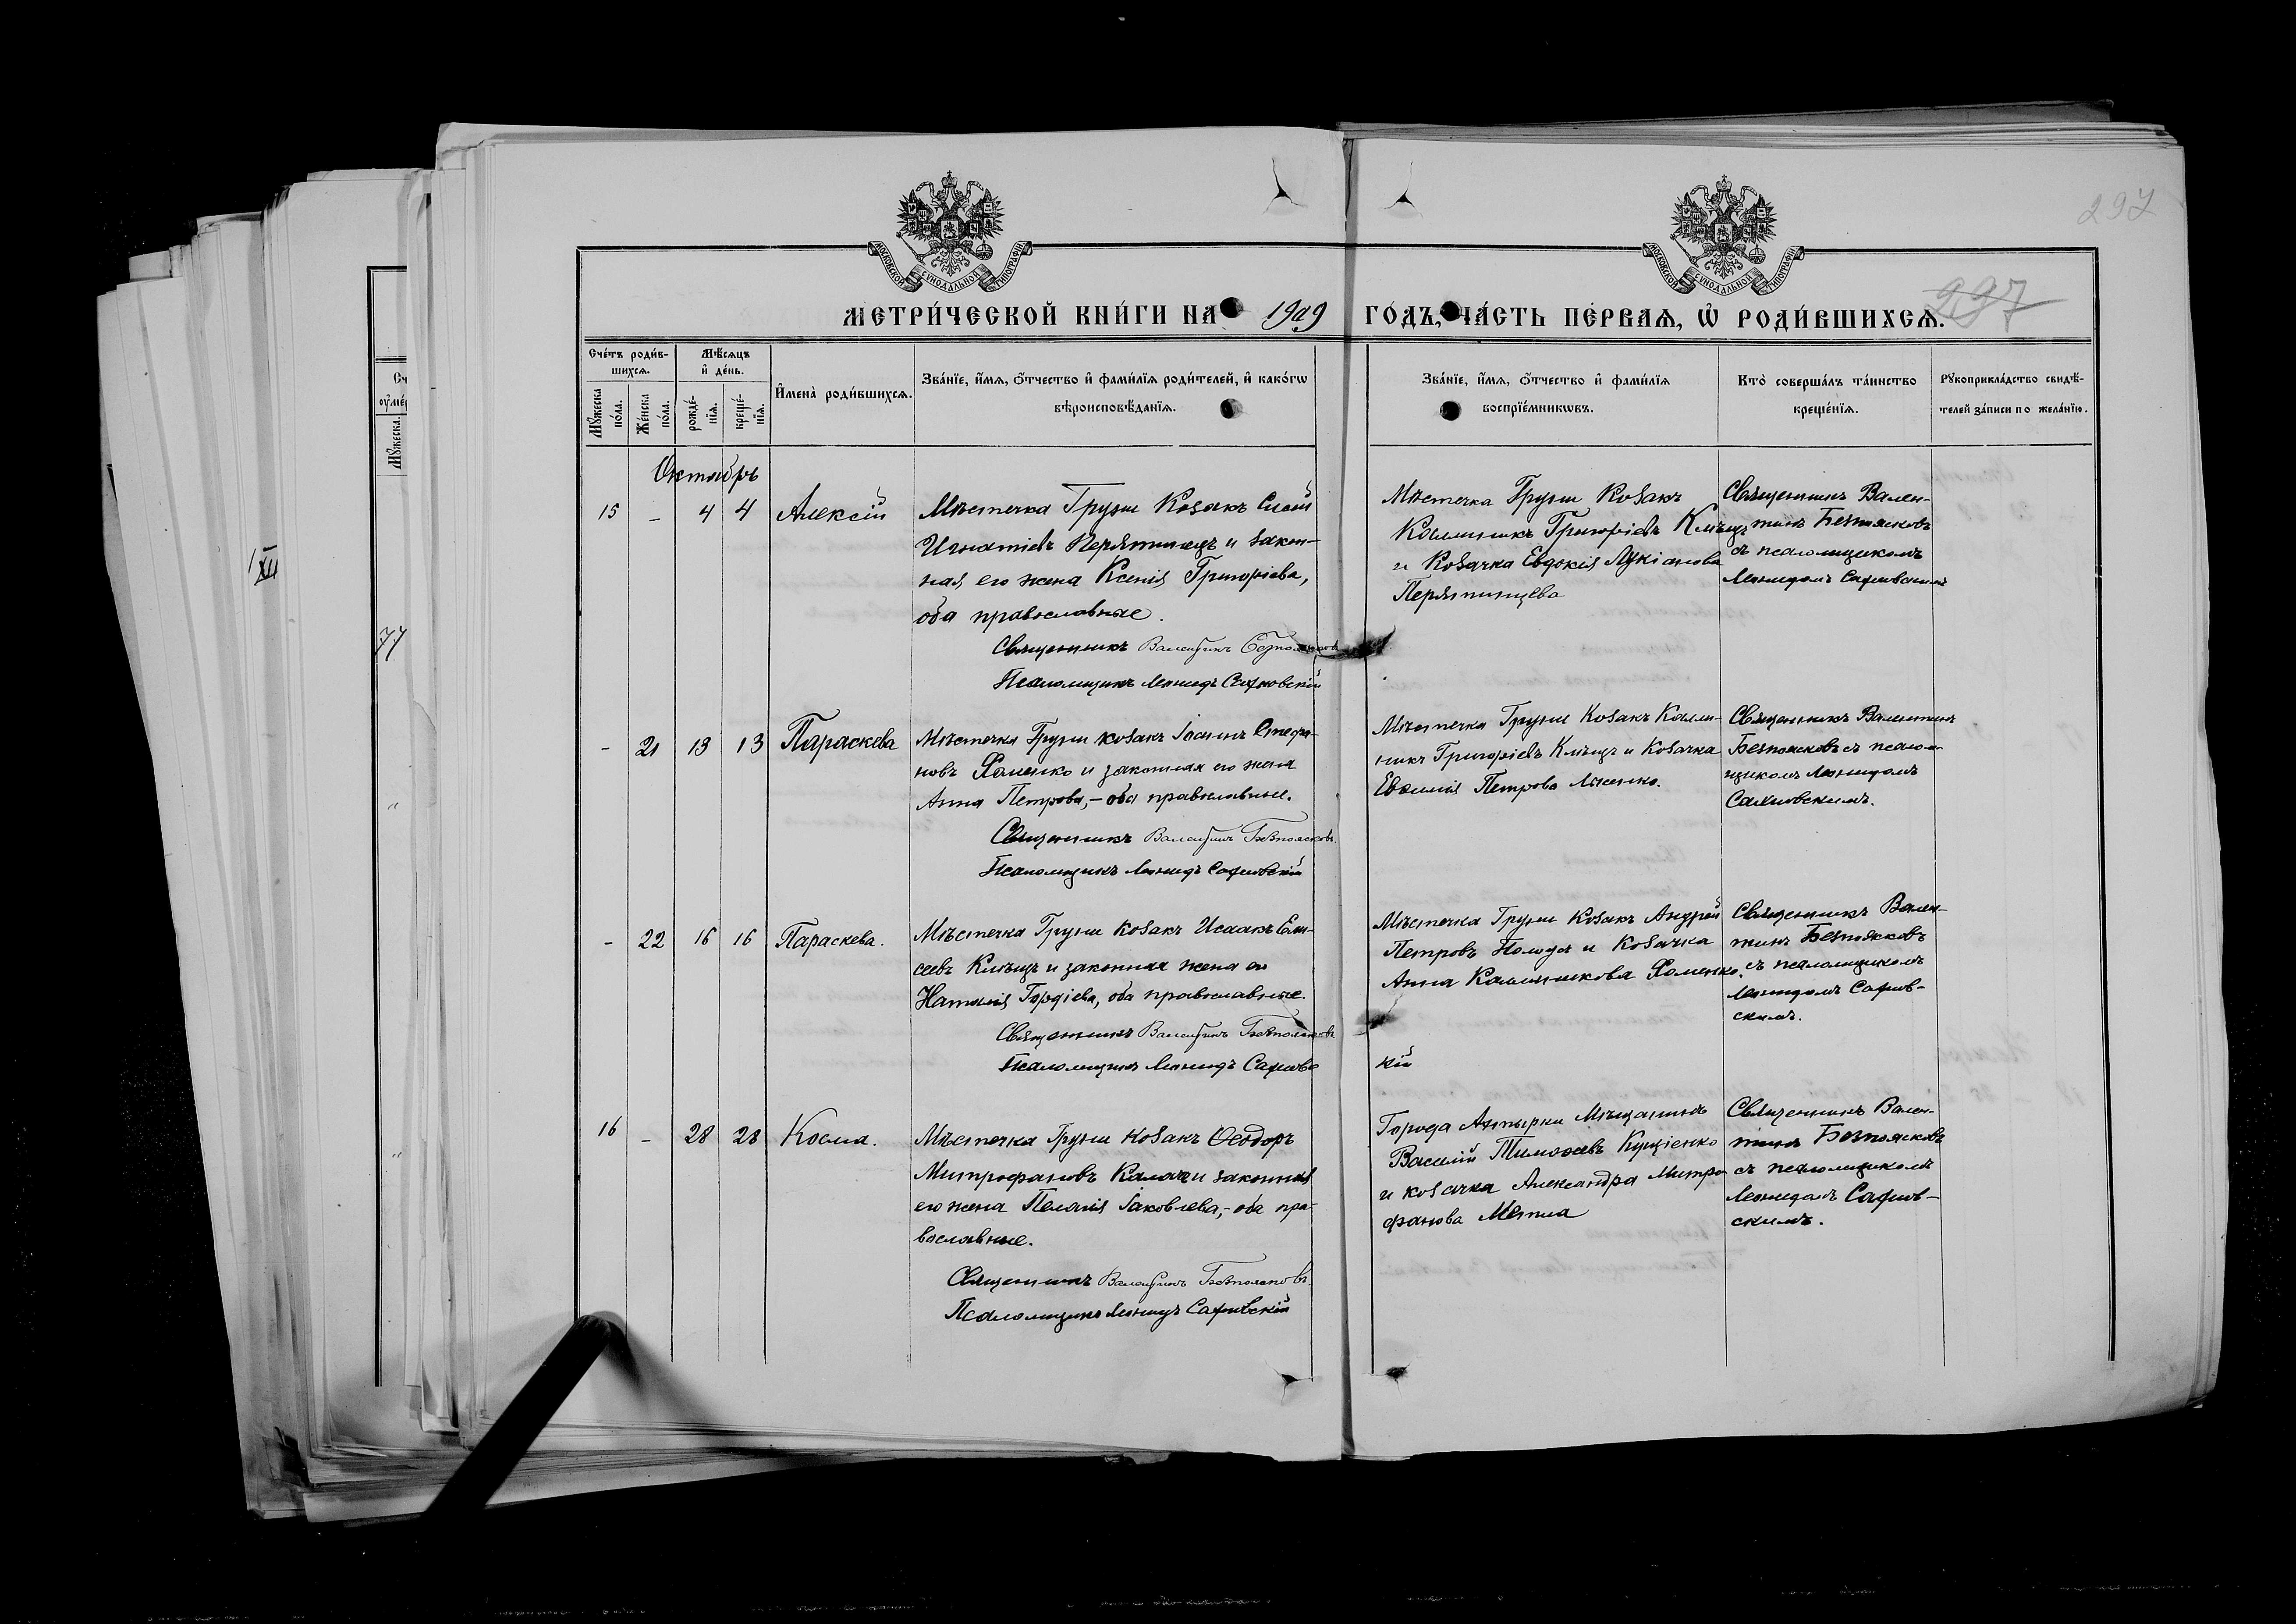 297
МОСКОВСКОЙ СѴНОДАЛЬНОЙ ТИПОГРАФІИ
МОСКОВСКОЙ СѴНОДАЛЬНОЙ ТИПОГРАФІИ
МЕТРИ́ЧЕСКОЙ КНИ́ГИ НА 1909 ГОДЪ, ЧА́СТЬ ПЕ́РВАѦ, Ѡ҆ РОДИ́ВШИХСѦ.
297
Сче́тъ роди́в-
шихсѧ.
Мꙋ́жеска по́ла.
Же́нска по́ла.
Мѣ́сѧцъ
и҆ де́нь.
рожде́-
нїѧ.
креще́-
нїѧ.
И҆мена̀ роди́вшихсѧ.
Зва́нїе, и҆́мѧ, ѻ҆́тчество и҆ фами́лїѧ роди́телей, и҆ како́гѡ
вѣроисповѣ́данїѧ.
Зва́нїе, и҆́мѧ, ѻ҆́тчество и҆ фами́лїѧ
воспрїе́мникѡвъ.
Кто̀ соверша́лъ та́инство
креще́нїѧ.
Рꙋкоприкла́дство свидѣ́-
телей за́писи по жела́нїю.
Октябрь
15 - 4 4 Алексій
Мѣстечка Груни Козакъ Сисой
Игнатіевъ Перятинецъ и закон-
ная его жена Ксенія Григоріева,
оба православные.
Священникъ Валентинъ Безпоясковъ
Псаломщикъ Леонидъ Сахновскій
Мѣстечка Груни Козакъ
Каллиникъ Григоріевъ Клѣщъ
и Козачка Евдокія Лукіанова
Перятинцева
Священникъ Вален-
тинъ Безпоясковъ
съ псаломщикомъ
Леонидомъ Сахновскимъ
- 21 13 13 Параскева
Мѣстечка Груни козакъ Іоаннъ Стефа-
новъ Хоменко и законная его жена
Анна Петрова, - оба православные.
Священникъ Валентинъ Безпоясковъ.
Псаломщикъ Леонидъ Сахновскій
Мѣстечка Груни Козакъ Калли-
никъ Григоріевъ Клѣщъ и Козачка
Евфимія Петрова Лысенко.
Священникъ Валентинъ
Безпоясковъ съ псалом-
щикомъ Леонидомъ
Сахновскимъ.
- 22 16 16 Параскева.
Мѣстечка Груни Козакъ Исаакъ Ели-
сеевъ Клѣщъ и законная жена его
Наталія Гордіева, оба православные.
Священникъ Валентинъ Безпоясковъ
Псаломщикъ Леонидъ Сахновс
кій
Мѣстечка Груни Козакъ Андрей
Петровъ Полуда и Козачка
Анна Каллиникова Хоменко.
Священникъ Вален-
тинъ Безпоясковъ
съ псаломщикомъ
Леонидомъ Сахнов-
скимъ.
16 - 28 28 Косма.
Мѣстечка Груни Козакъ Ѳеодоръ
Митрофановъ Калачъ и законная
его жена Пелагія Іаковлева, - оба пра-
вославные.
Священникъ Валентинъ Безпоясковъ.
Псаломщикъ Леонидъ Сахновскій
Города Ахтырки Мѣщанинъ
Василій Тимоѳеевъ Куціенко
и козачка Александра Митро
фанова Метла
Священникъ Вален-
тинъ Безпоясковъ
съ псаломщикомъ
Леонидомъ Сахнов-
скимъ.